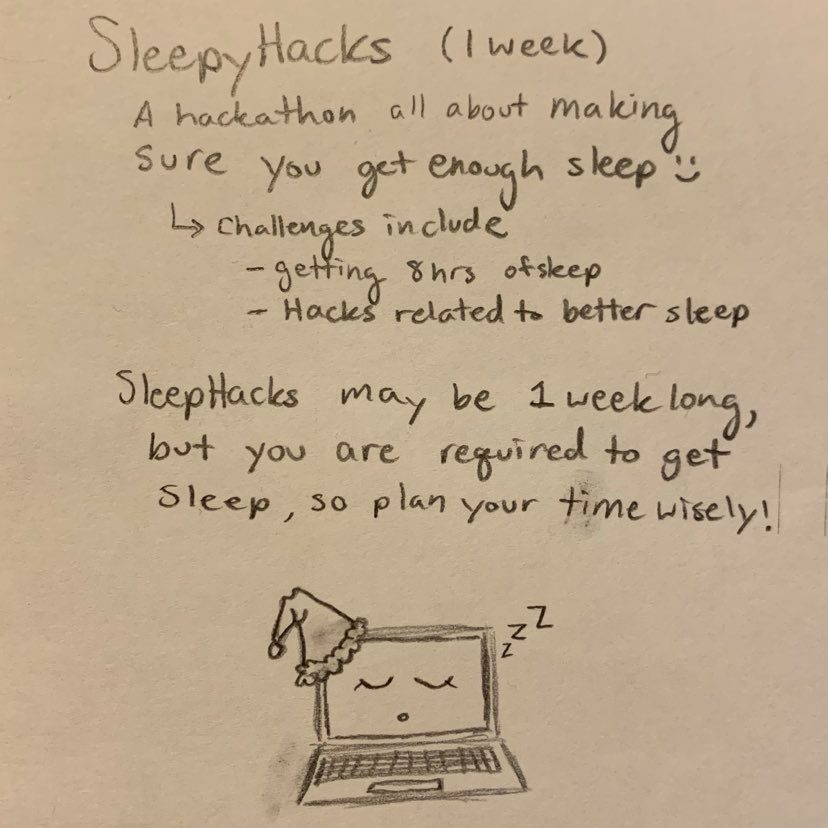 SleepyHacks (1 week)
A hackathon all about making
sure you get enough sleep :)
↳ Challenges include
- getting 8hrs of sleep
- Hacks related to better sleep
SleepHacks may be 1 week long,
but you are required to get
sleep, so plan your time wisely!
z z Z